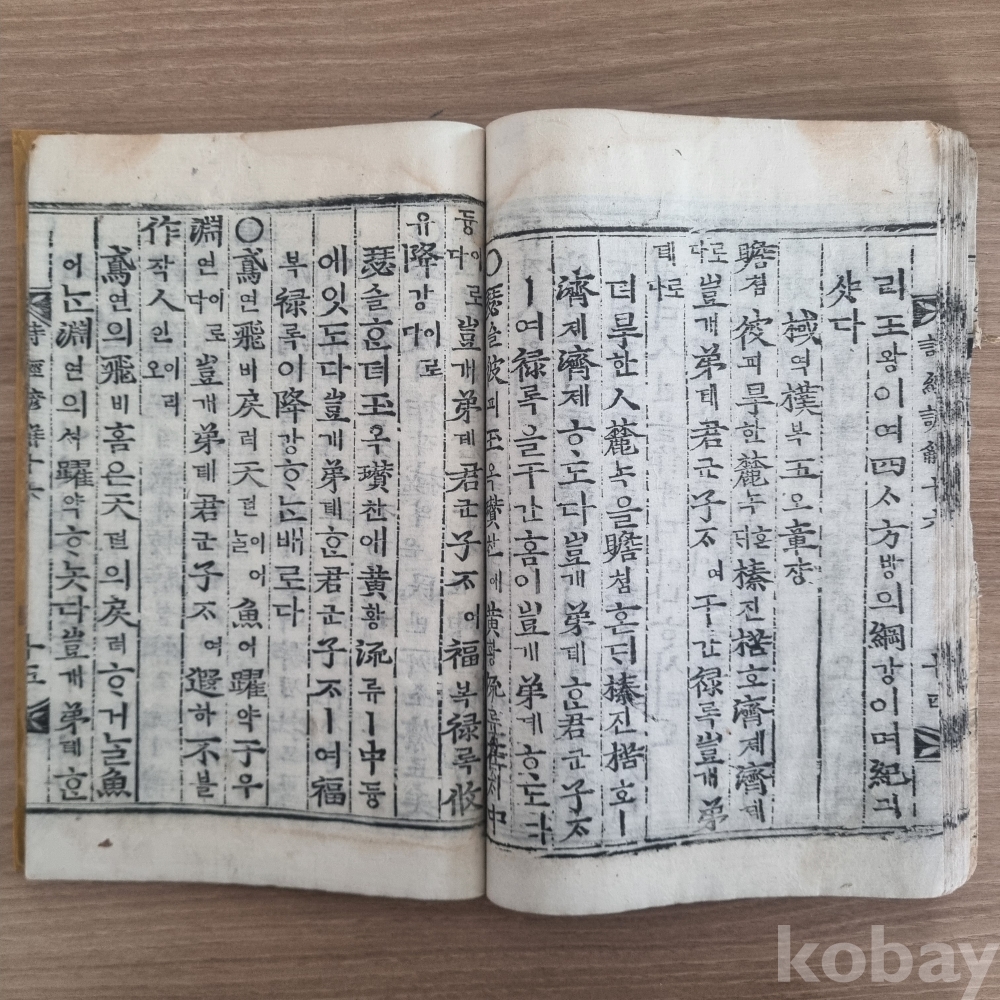 리王왕이여四ᄉ方방의綱강이며紀긔
샷다
棫역樸부五오章쟝
瞻쳠彼피旱한麓녹혼대榛진楛호濟졔濟졔
로다豈개弟뎨君군子ᄌ여干간祿록豈개弟
뎨로다
뎌旱한人麓녹을瞻쳠혼ᄃᆡ榛진楛호ㅣ
濟졔濟졔ᄒᆞ도다豈개弟뎨ᄒᆞᆫ君군子ᄌ
ㅣ여祿록을干간홈이豈개弟뎨ᄒᆞ도다
○瑟슬彼피玉옥瓚찬애黃황流류在ᄌᆡ中
듕이로다豈개弟뎨君군子ᄌ이福복祿록攸
유降강이로다
瑟슬ᄒᆞᆫ뎌玉옥瓚찬애黃황流류ㅣ中듕
에잇도다豈개弟뎨ᄒᆞᆫ君군子ᄌㅣ여福
복祿록이降강ᄒᆞᄂᆞᆫ배로다
○鳶연飛비戾려天텬이어ᄂᆞᆯ魚어躍약于우
淵연이로다豈개弟뎨君군子ᄌ여遐하不블
作작人인이리오
鳶연의飛비홈은天텬의戾려ᄒᆞ거ᄂᆞᆯ魚
어ᄂᆞᆫ淵연의셔躍약ᄒᆞ놋다豈개弟뎨ᄒᆞᆫ
詩經諺解十六
十四
詩經諺解十六
十五
kobay